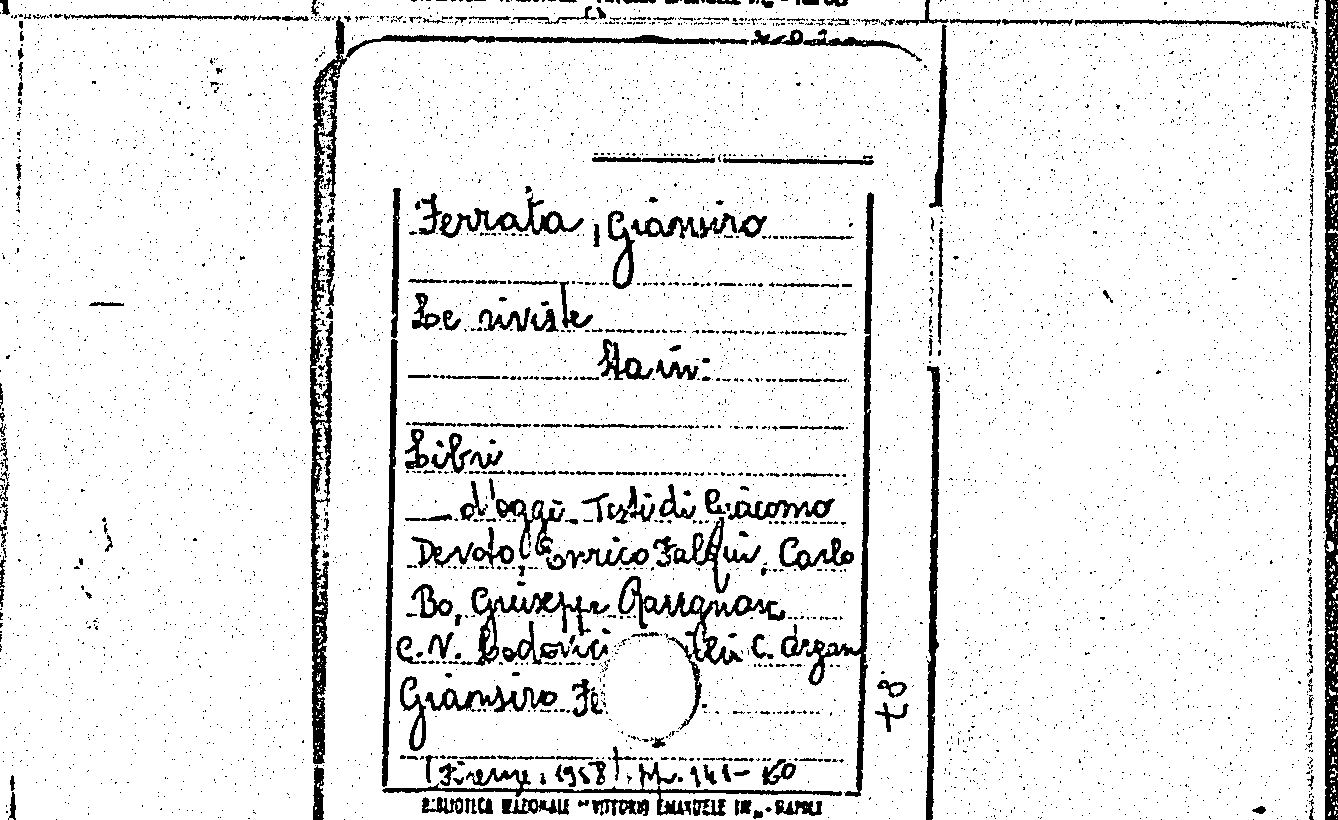 Ferrata, Giansiro
Le riviste
Sta in:
Libri
d'oggi. Testi di Giacomo
Devoto, Enrico Falqui, Carlo
Bo, Giuseppe Ravegnani,
C. V. Lodovici C. Argan
Giansiro Fe
(Firenze, 1958). pp. 141-160
BIBLIOTECA NAZIONALE "VITTORIO EMANUELE III" - NAPOLI
87